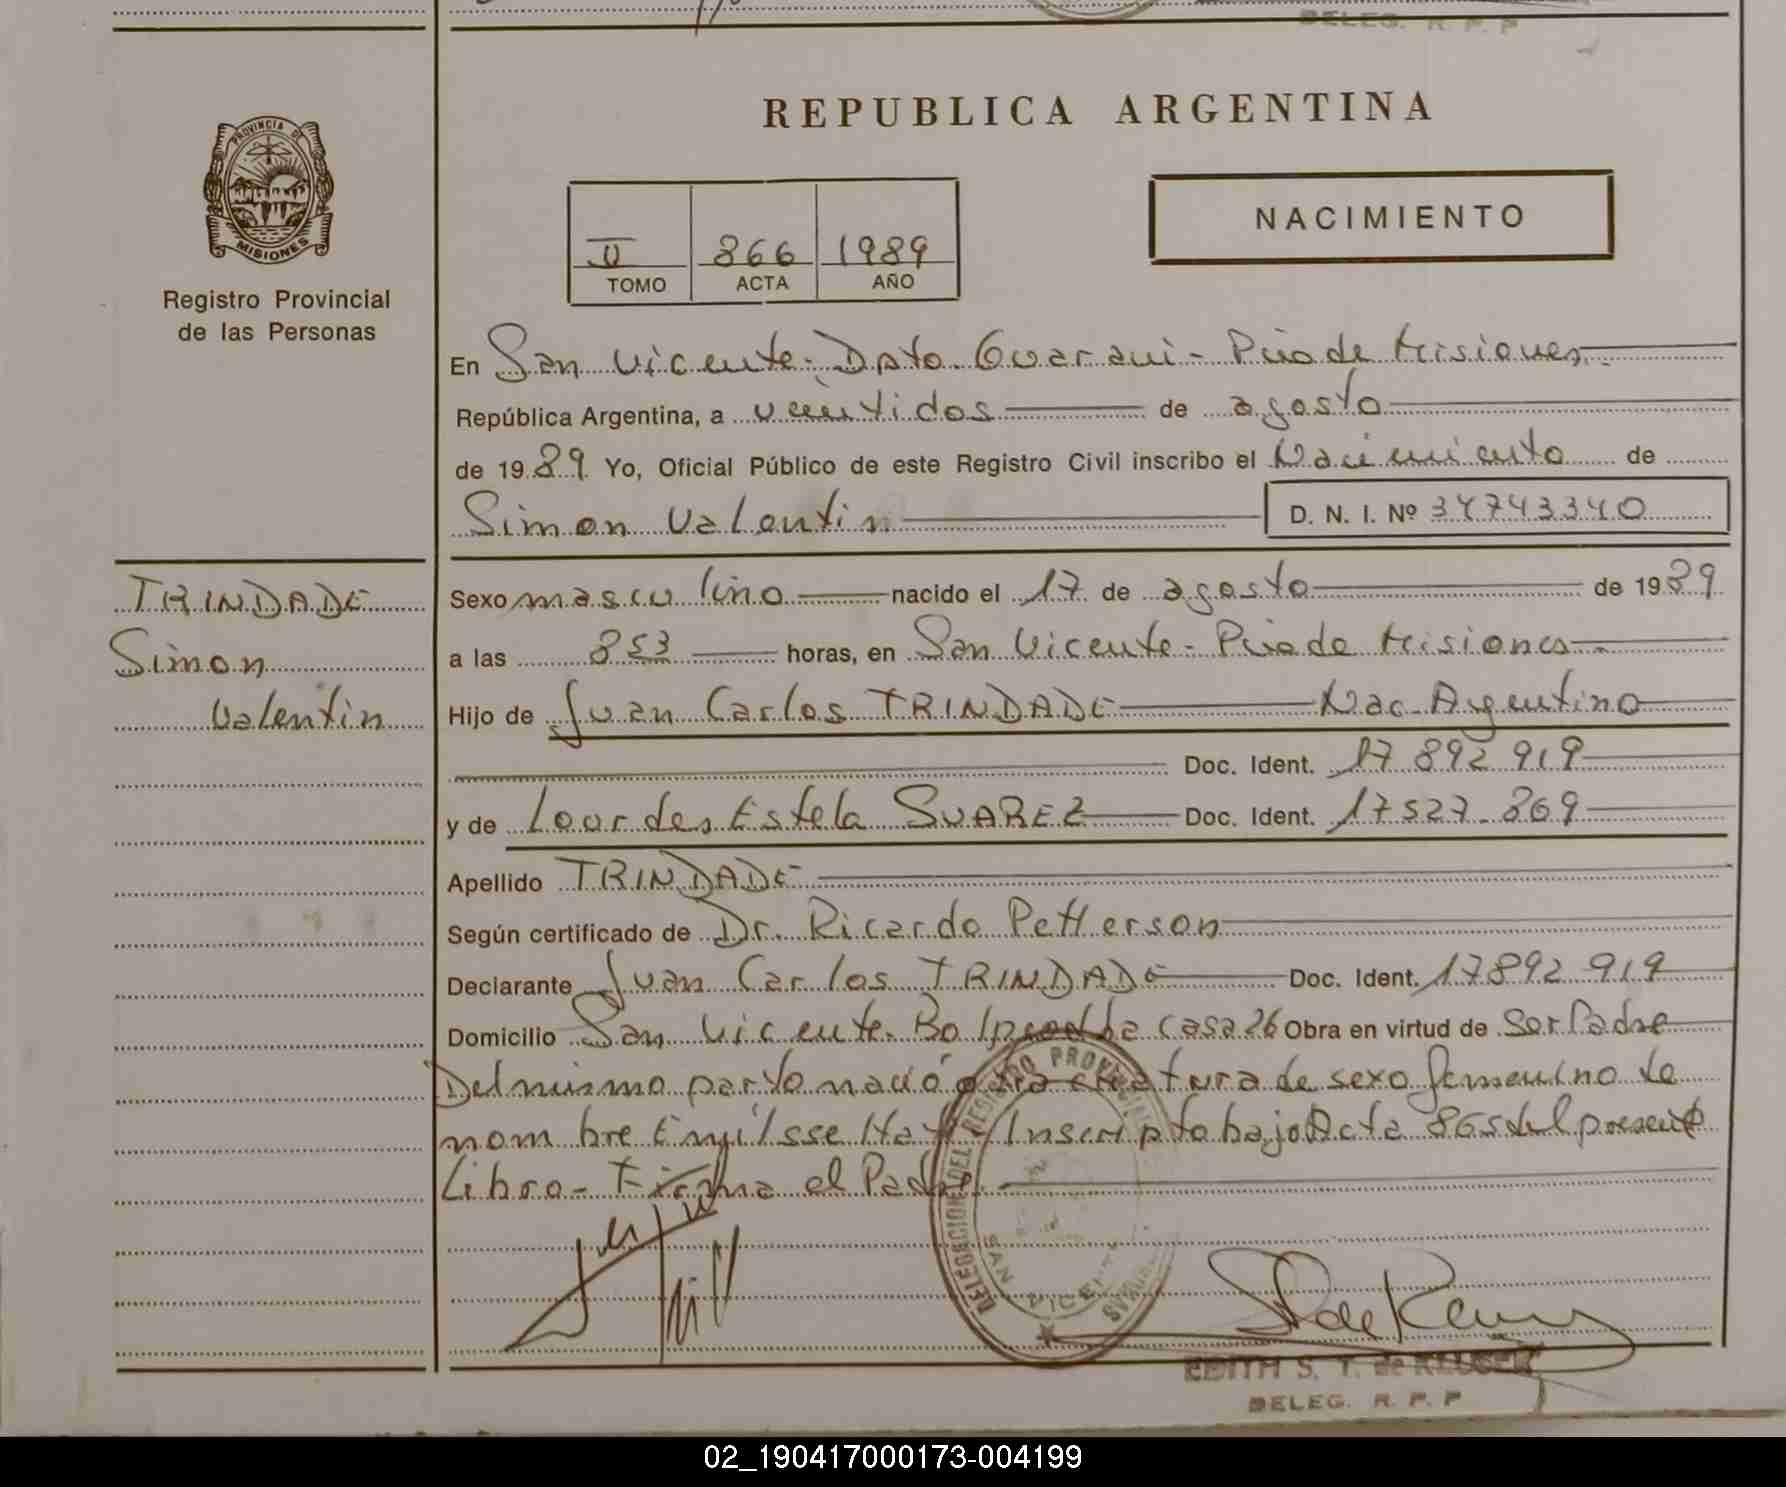 BELEG. R. P. P
PROVINCIA DE
MISIONES
Registro Provincial
de las Personas
REPUBLICA ARGENTINA
NACIMIENTO
II 866 1989
TOMO ACTA AÑO
En San Vicente - Dpto. Guarani - Pcia de Misiones
República Argentina, a veintidos de agosto
de 1989. Yo, Oficial Público de este Registro Civil inscribo el Nacimiento de
Simon Valentin D. N. I. Nº 34743340
TRINDADE
Simon
Valentin
Sexo masculino nacido el 17 de agosto de 1989
a las 8 53 horas, en San Vicente - Pcia de Misiones
Hijo de Juan Carlos TRINDADE Nac. Argentino
Doc. Ident. 17 892 919
y de Lourdes Estela SUAREZ Doc. Ident. 17527.869
Apellido TRINDADE
Según certificado de Dr. Ricardo Petterson
Declarante Juan Carlos TRINDADE Doc. Ident. 17892 919
Domicilio San Vicente - Bo casa 26 Obra en virtud de Ser Padre
Del mismo parto nació otra criatura de sexo femenino de
nombre Inscripto bajo Acta 865 del presente
Libro - Firma el Padre
DELEGACION DEL REGISTRO PROVINCIAL
SAN VICENTE
EDITH S. T. de KEUSER
BELEG. R. P. P
02_190417000173-004199